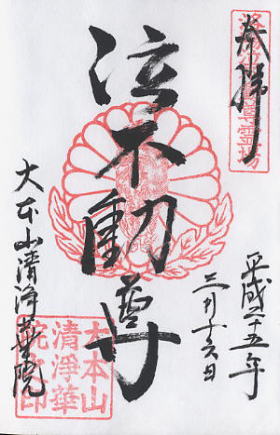 奉拝
泣不動尊
平成二十五年
三月十六日
大本山清浄華院
大本山
清浄華
院之印